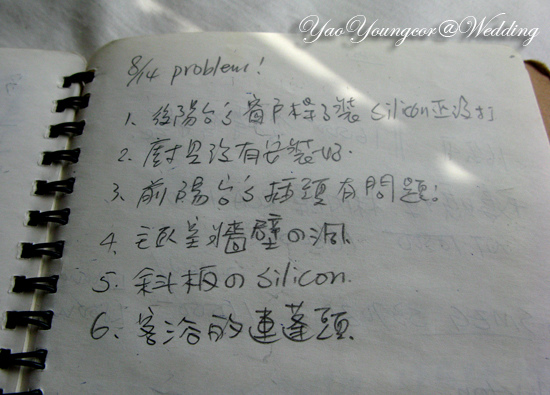 Yao Youngcor@Wedding
8/14 problem!
1. 後陽台的窗戶 裝 Silicon 還沒打
2. 廚具沒有安裝好.
3. 前陽台的插頭有問題!
4. 主臥室 牆壁の洞.
5. 斜板の silicon.
6. 客浴的蓮蓬頭.